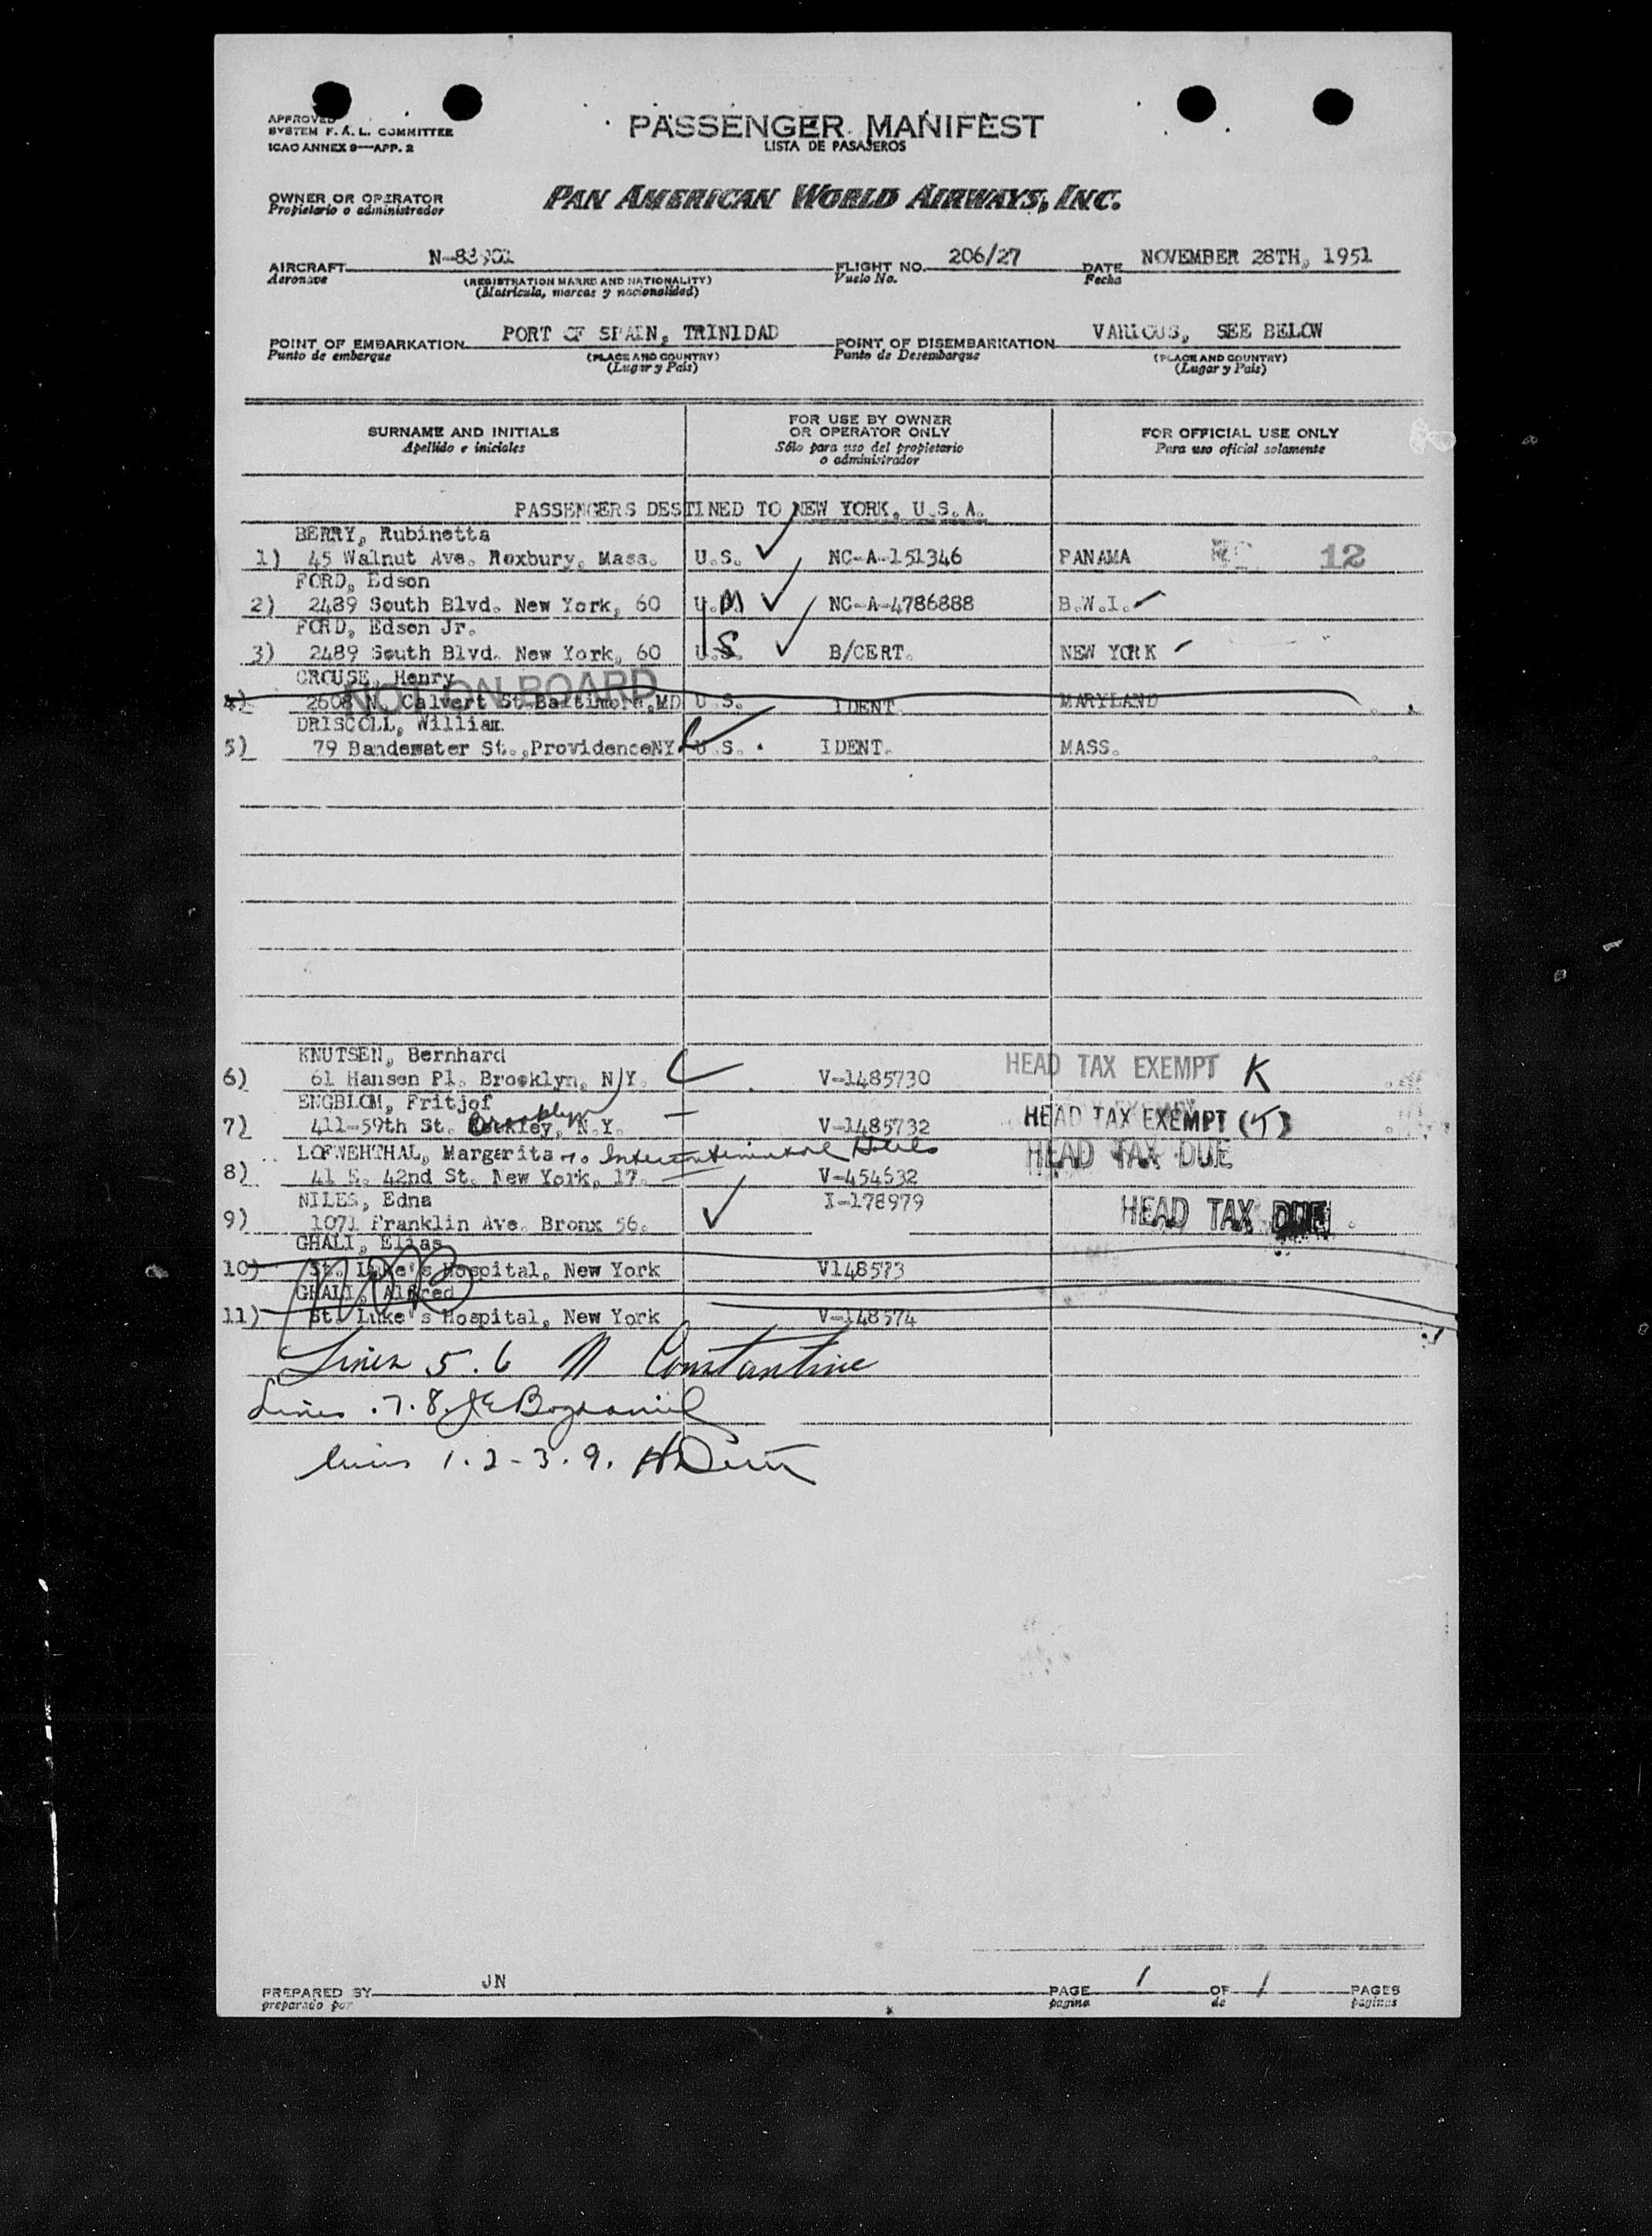 APPROVED
SYSTEM F. A. L. COMMITTEE
ICAO ANNEX 9—APP. 2
PASSENGER MANIFEST
LISTA DE PASAJEROS
OWNER OR OPERATOR
Propietario o administrador
PAN AMERICAN WORLD AIRWAYS, INC.
AIRCRAFT
Aeronave
(REGISTRATION MARKS AND NATIONALITY)
(Matricula, marcas y nacionalidad)
FLIGHT NO. 206/27
Vuelo No.
DATE NOVEMBER 28TH, 1951
Fecha
POINT OF EMBARKATION PORT OF SPAIN, TRINIDAD
Punto de embarque
(PLACE AND COUNTRY)
(Lugar y Pais)
POINT OF DISEMBARKATION VARIOUS, SEE BELOW
Punto de Desembarque
(PLACE AND COUNTRY)
(Lugar y Pais)
SURNAME AND INITIALS
Apellido e iniciales
FOR USE BY OWNER
OR OPERATOR ONLY
Sólo para uso del propietario
o administrador
FOR OFFICIAL USE ONLY
Para uso oficial solamente
PASSENGERS DESTINED TO NEW YORK, U.S.A.
BERRY, Rubinetta
1) 45 Walnut Ave. Roxbury, Mass. U.S. NC-A-151346 PANAMA 12
FORD, Edson
2) 2489 South Blvd. New York, 60 NC-A-4786888 B.W.I.
FORD, Edson Jr.
3) 2489 South Blvd. New York, 60 U.S. B/CERT. NEW YORK
CROUSE, Henry
NOT ON BOARD
4) 2608 N. Calvert St. Baltimore, MD U.S. IDENT. MARYLAND
DRISCOLL, William
5) 79 Bandemater St., Providence NY U.S. IDENT. MASS.
KNUTSEN, Bernhard
6) 61 Hansen Pl. Brooklyn, N.Y. V-1485730 HEAD TAX EXEMPT K
ENGBLOM, Fritjof
Brooklyn
7) 411-59th St. Berkley, N.Y. V-1485732 HEAD TAX EXEMPT
LOEWENTHAL, Margarita Intercontinental Hotels HEAD TAX DUE
8) 41 E. 42nd St. New York, 17. V-454632
NILES, Edna I-178979
9) 1071 Franklin Ave. Bronx 56. HEAD TAX DUE
GHALI, Elias
10) St. Luke's Hospital, New York V148573
GHALI, Alfred
NOB
11) St. Luke's Hospital, New York V-148574
Lines 5.6 N Constantine
Lines .7.8.
lines 1.2-3.9.
PREPARED BY JN
preparado por
PAGE 1 OF 1 PAGES
pagina de paginas